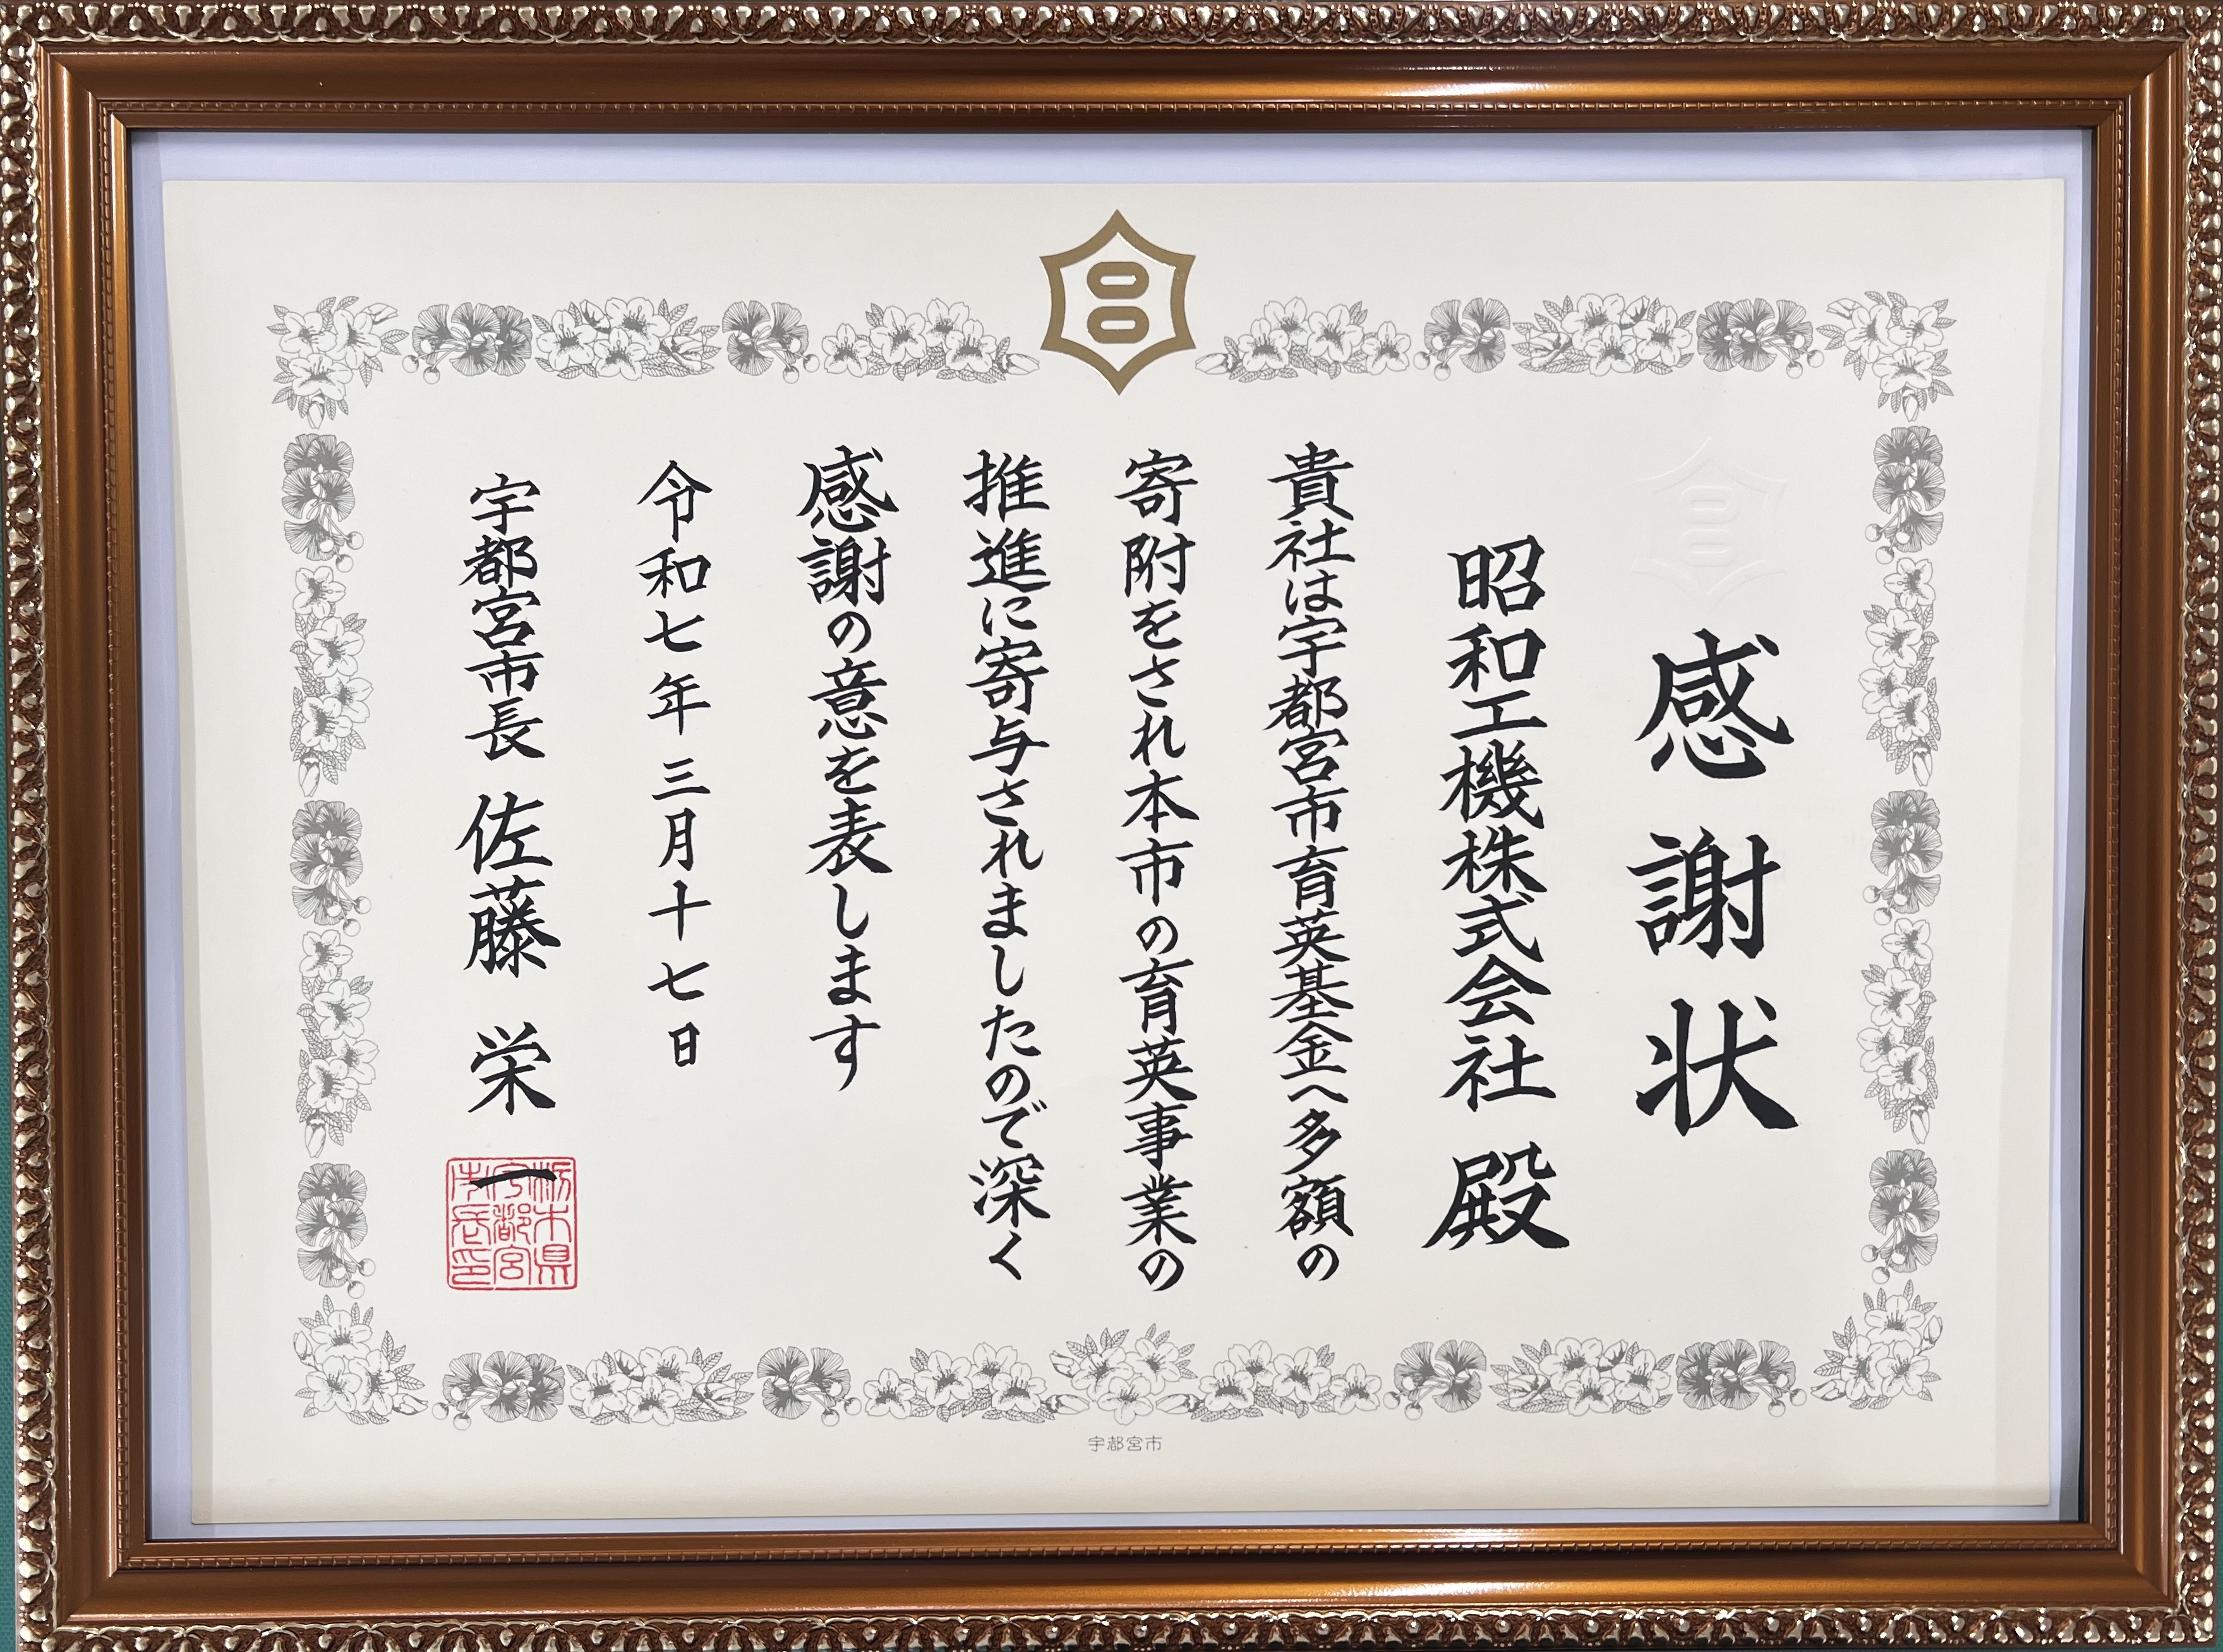 感謝状
昭和工機株式会社 殿
貴社は宇都宮市育英基金へ多額の
寄附をされ本市の育英事業の
推進に寄与されましたので深く
感謝の意を表します
令和七年三月十七日
宇都宮市長 佐藤 栄一
栃木県
宇都宮
市長印
宇都宮市